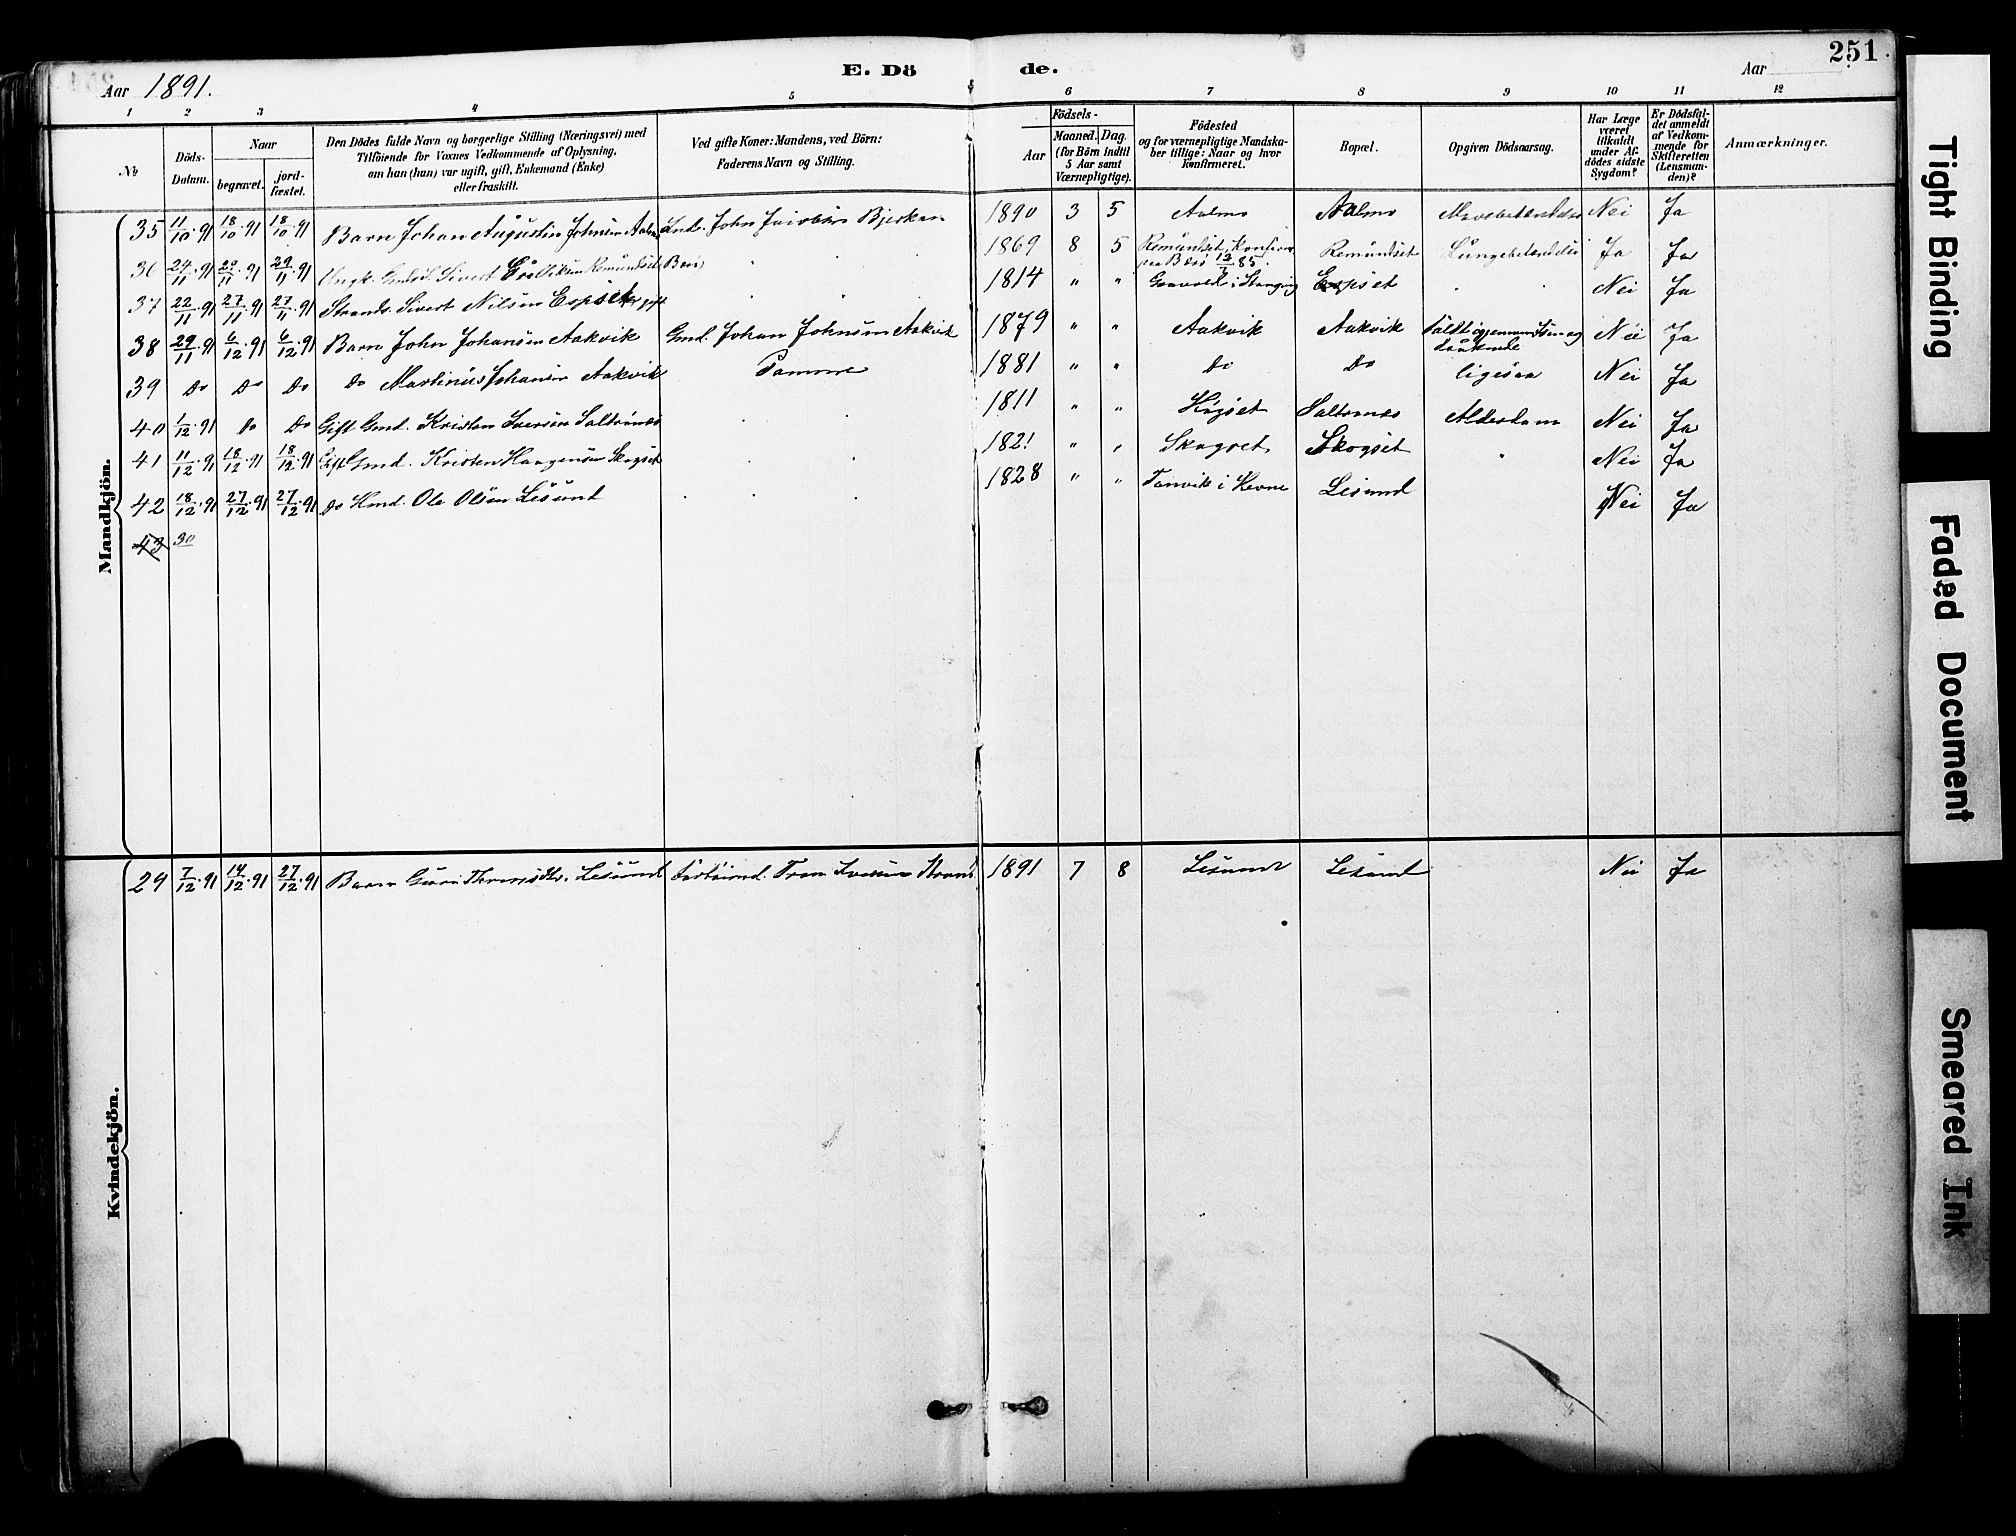 251
Aar 1891.
E. Dö de.
Aar
1 2 3 4 5 6 7 8 9 10 11 12
No
Döds-Datum.
Naar
begravet.
jord-fæstet.
Den Dödes fulde Navn og borgerlige Stilling (Næringsvei) med
Tilföiende for Voxnes Vedkommende af Oplysning,
om han (hun) var ugift, gift, Enkemand (Enke)
eller fraskilt.
Ved gifte Koner: Mandens, ved Börn:
Faderens Navn og Stilling.
Födsels-
Aar
Maaned. Dag.
(for Börn indtil
5 Aar samt
Værnepligtige).
Födested
og for værnepligtige Mandska-
ber tillige: Naar og hvor
konfirmeret.
Bopæl.
Opgiven Dödsaarsag.
Har Læge
været
tilkaldt
under Af-
dödes sidste
Sygdom?
Er Dödsfal-
det anmeldt
af Vedkom-
mende for
Skifteretten
(Lensman-
den)?
Anmærkninger.
Mandkjön.
35 11/10 91 18/10 91 18/10 91 Barn Johan Augustin Johnsen John Bjerkan 1890 3 5 Aalmo Aalmo Nei Ja
36 24/11 91 29/11 91 29/11 91 Ungk. Sivert Remundset 1869 8 5 Remundset 85 Remundset Lungebetændelse Ja Ja
37 22/11 91 27/11 91 27/11 91 Sivert Nilsen Espset gift 1814 " " Espset Nei Ja
38 29/11 91 6/12 91 6/12 91 Barn John Johansen Aakvik Gmd. Johan Johnsen Aakvik 1879 " " Aakvik Aakvik Nei Ja
39 Do Do Do Do Martinus Johansen Aakvik Samme 1881 " " Do Do ligesaa Nei Ja
40 1/12 91 Do Do Gift Gmd. Kristen Iversen Saltrønes 1811 " " Høgset Alderdom Nei Ja
41 11/12 91 18/12 91 18/12 91 Gift Gmd. Kristen Haagensen Skogset 1821 " " Skogset Skogset " Nei Ja
42 18/12 91 27/12 91 27/12 91 Do Ole Olsen Lesund 1828 " " i Hevne Lesund Nei Ja
43 30
Kvindekjön.
29 7/12 91 14/12 91 27/12 91 Barn Guri Lesund 1891 7 8 Lesund Lesund Nei Ja
Tight Binding
Faded Document
Smeared Ink